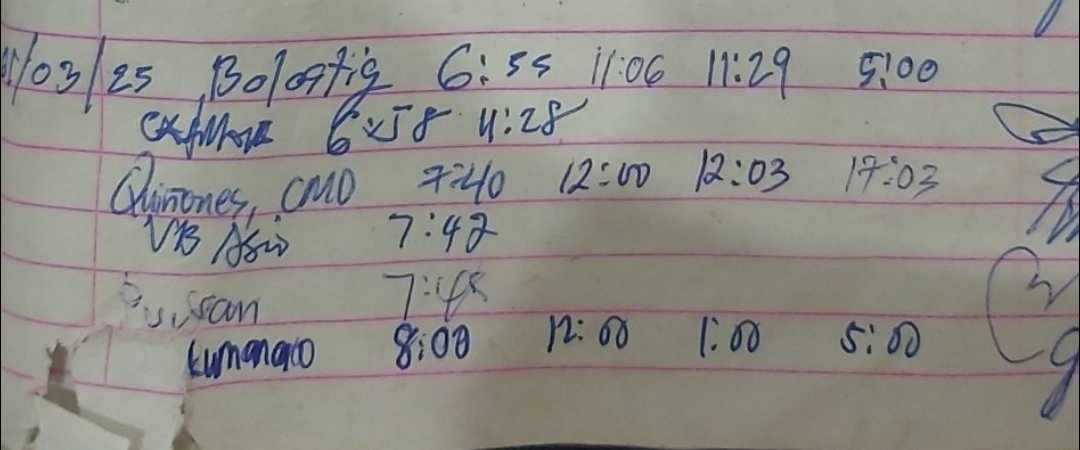 /03/25 Bolostig 6:55 11:06 11:29 5:00
6:58 11:28
Quinones, CMO 7:40 12:00 12:03 17:03
VB Asio 7:42
7:48
Lumanao 8:00 12:00 1:00 5:00